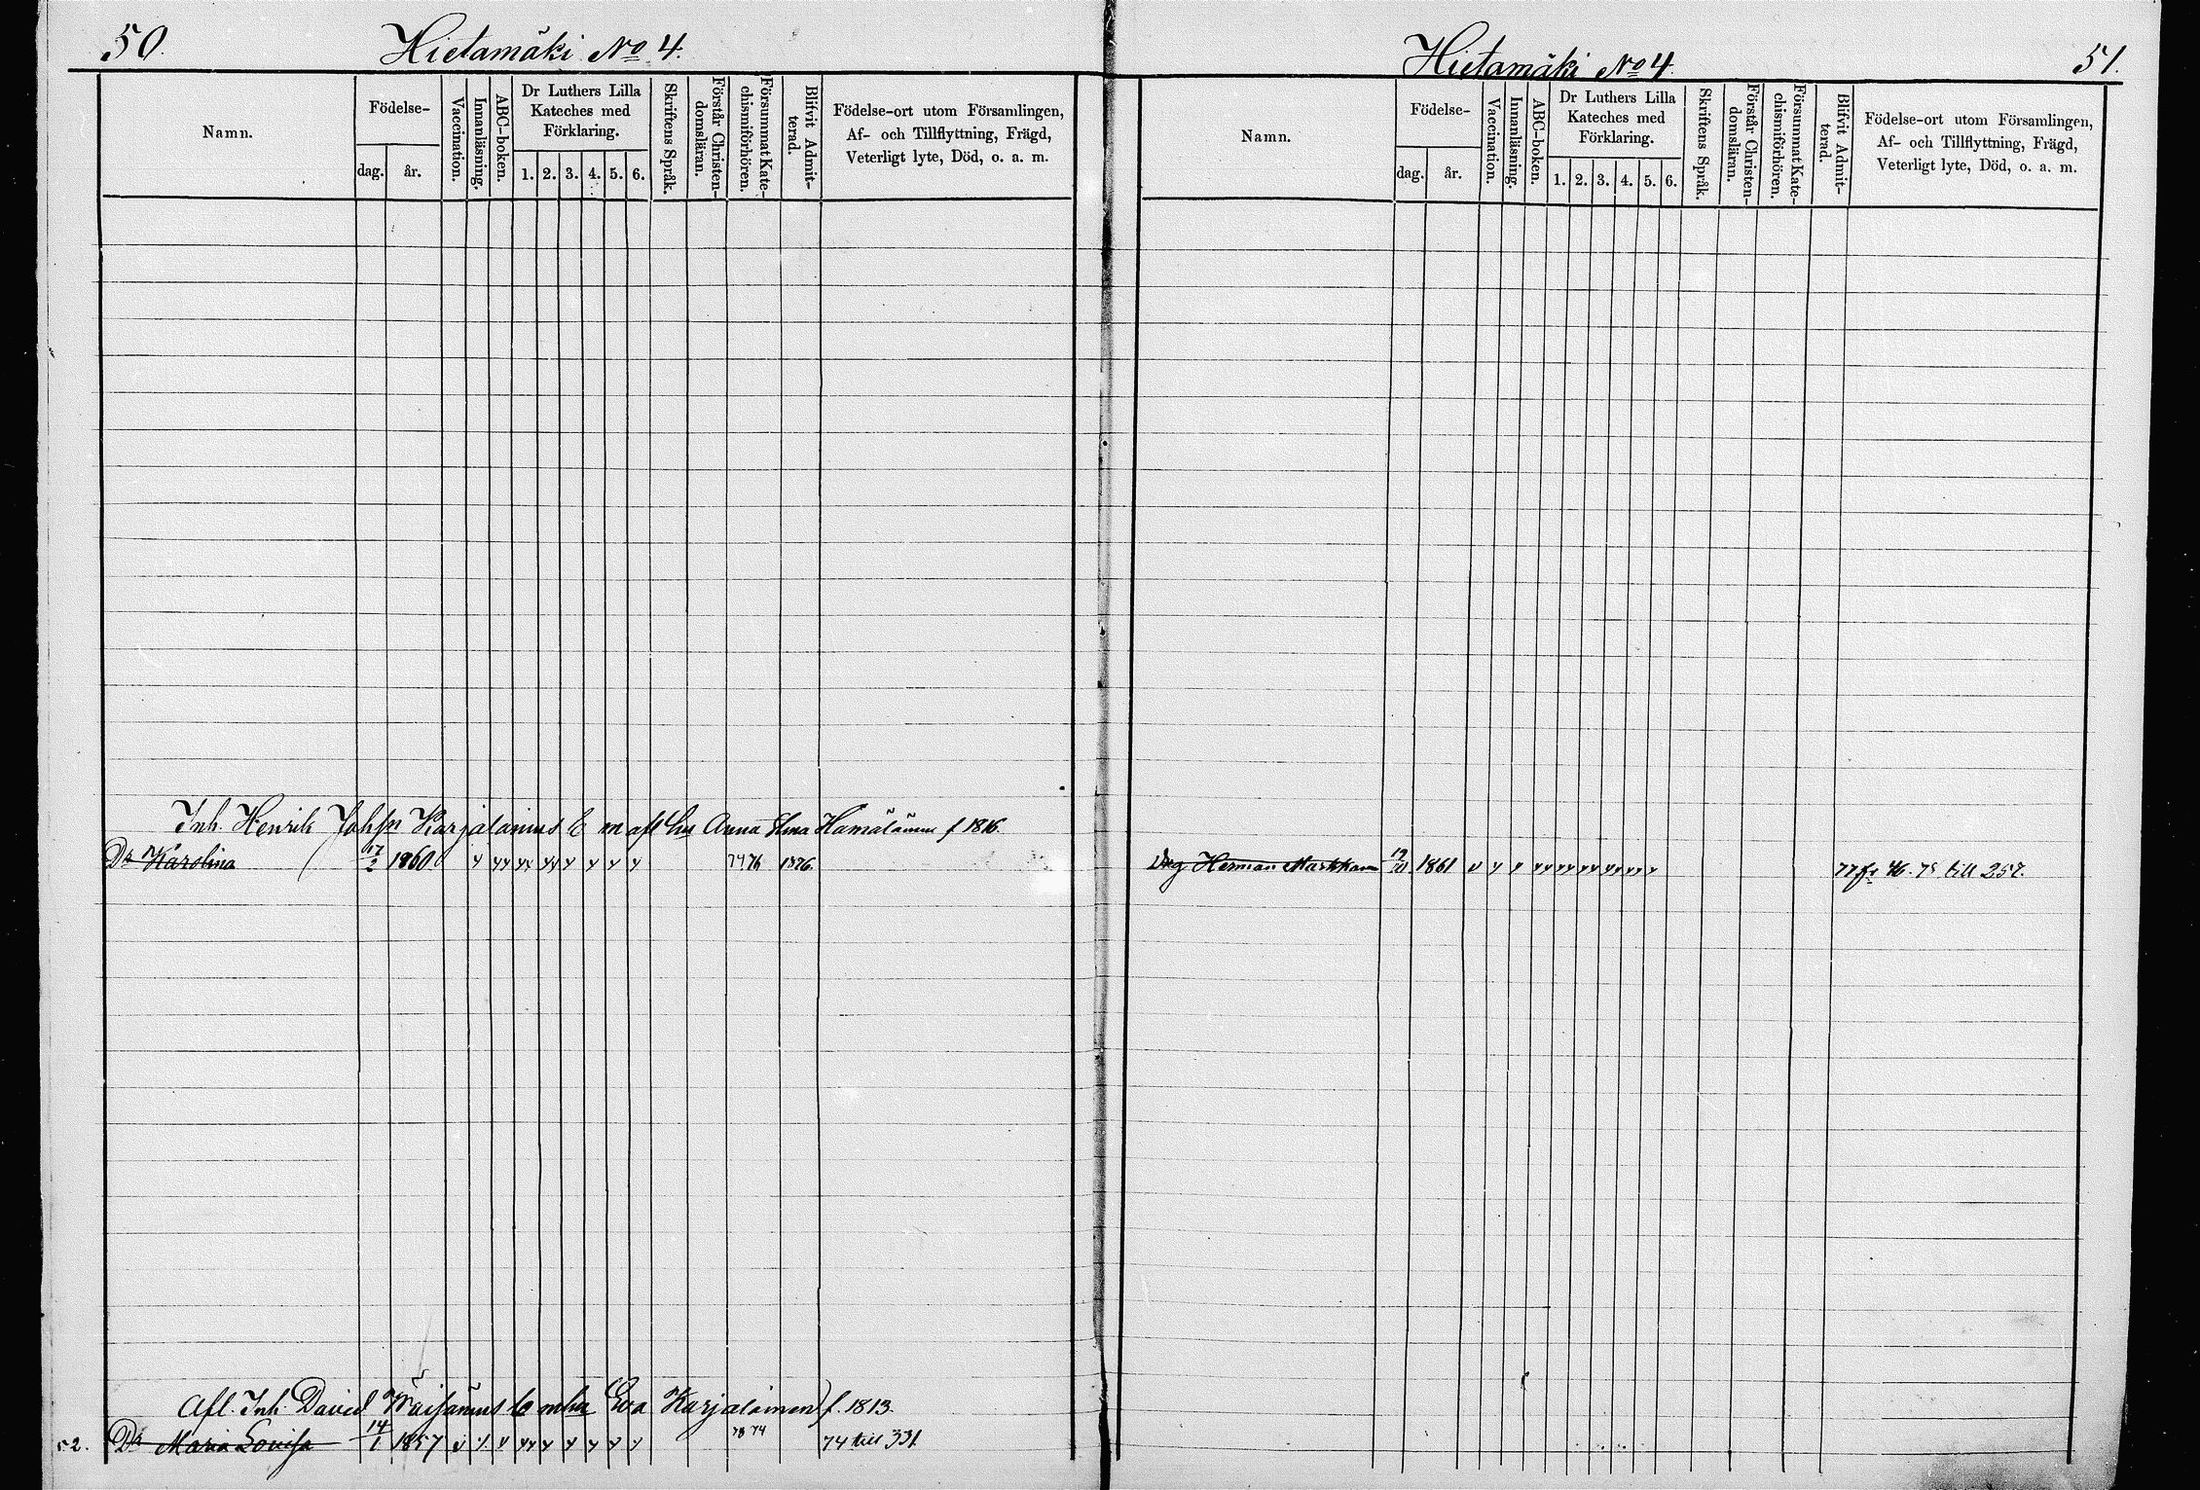 50. Hietamäki No 4.
Namn. Födelse- dag. år. Vaccination. Innanläsning. ABC-boken. Dr Luthers Lilla Kateches med Förklaring. 1. 2. 3. 4. 5. 6. Skriftens Språk. Förstår Christen-domsläran. Försummat Kate-chismiförhören. Blifvit Admit-terad. Födelse-ort utom Församlingen, Af- och Tillflyttning, Frägd, Veterligt lyte, Död, o. a. m.
Inh. Henrik Johsn Karjalainens E m afl hu Anna Hämäläinen f 1816.
Dr Karolina 17/2 1860 74 76 1876.
Afl. Inh. David Wäisänens Eva Karjalainen f. 1813.
52. Dr Maria Lovisa 14/1 1857 73 74 74 till 331
Hietamäki No 4. 51.
Namn. Födelse- dag. år. Vaccination. Innanläsning. ABC-boken. Dr Luthers Lilla Kateches med Förklaring. 1. 2. 3. 4. 5. 6. Skriftens Språk. Förstår Christen-domsläran. Försummat Kate-chismiförhören. Blifvit Admit-terad. Födelse-ort utom Församlingen, Af- och Tillflyttning, Frägd, Veterligt lyte, Död, o. a. m.
Drg Herman Markkanen 1861 77 fr 46. 78 till 257.